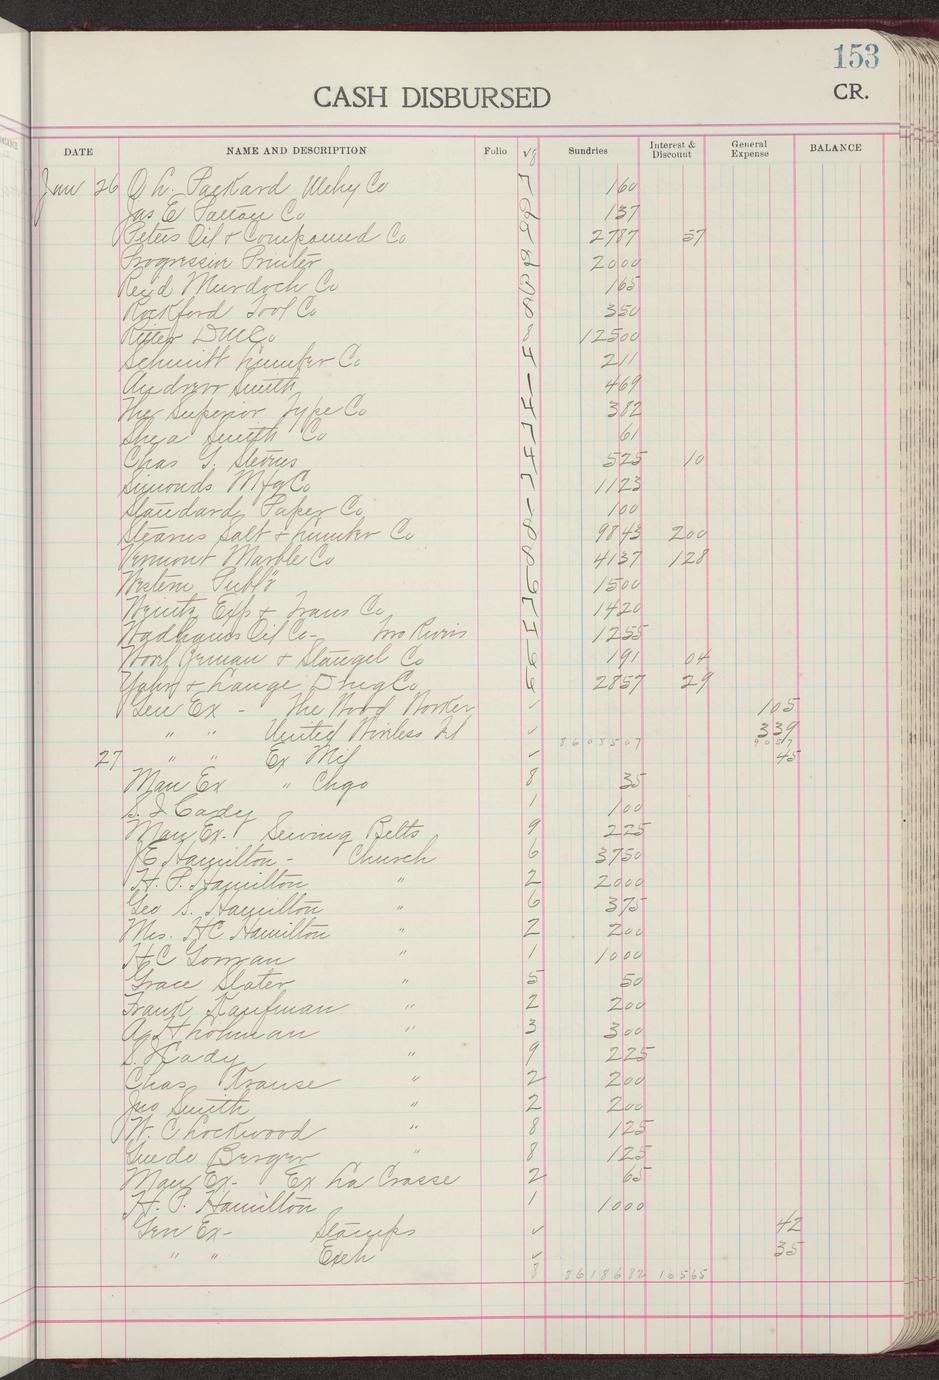 153
CASH DISBURSED
CR.
DATE NAME AND DESCRIPTION Folio Sundries Interest & Discount General Expense BALANCE
Jan 26 O. L. Packard Mchy Co 160
Jas E Patton Co 137
Peters Oil + Compound Co 2787 57
Progressive Printer 2000
Reid Murdoch Co 165
Rockford Tool Co 350
Ritter DMCo 8 12500
Schmitt Lumber Co 211
Andrew Smith 469
The Superior Type Co 382
Shea Smith Co 61
Chas G. Stevens 525 10
Simonds Mfg Co 1123
Standard Paper Co 100
Stearns Salt + Lumber Co 8 9843 200
Vermont Marble Co 8 4137 128
Western Publ'r 1500
Wrintz Exp + Trans Co. 1420
Wadhams Oil Co- Two Rivers 1255
+ Stangel Co 191 04
Yahr + Lange Drug Co 2857 29
Gen Ex - The Wood Worker ✓ 105
" " United Wireless Tel ✓ 339
8608507 9057
27 " " Ex Mil ✓ 45
Man Ex " Chgo 8 35
S. J Cady 1 100
Man Ex. Sewing Belts 9 225
JE Hamilton - Church 6 3750
H. P. Hamilton " 2 2000
Geo S. Hamilton " 6 375
Mrs. HC Hamilton " 2 200
HC Gorman " 1 1000
Grace Slater " 5 50
Frank Kaufman " 2 200
Ag H Lohman " 3 300
S. J Cady " 9 225
Chas Krause " 2 200
Jno Smith " 2 200
W. C Lockwood " 8 125
Guedo Berger " 8 125
Man Ex- Ex La Crosse 2 65
H. P. Hamilton 1 1000
Gen Ex- Stamps ✓ 42
" " Exch ✓ 35
8 8618682 16565